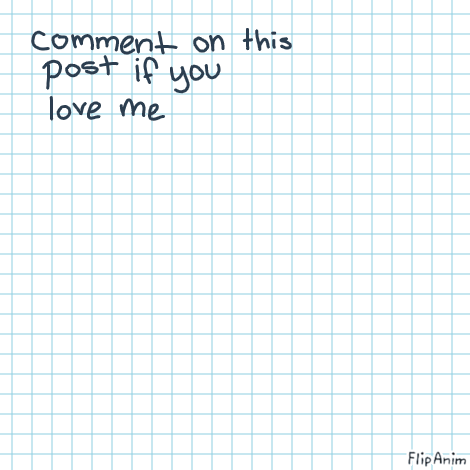 comment on this
post if you
love me
FlipAnim